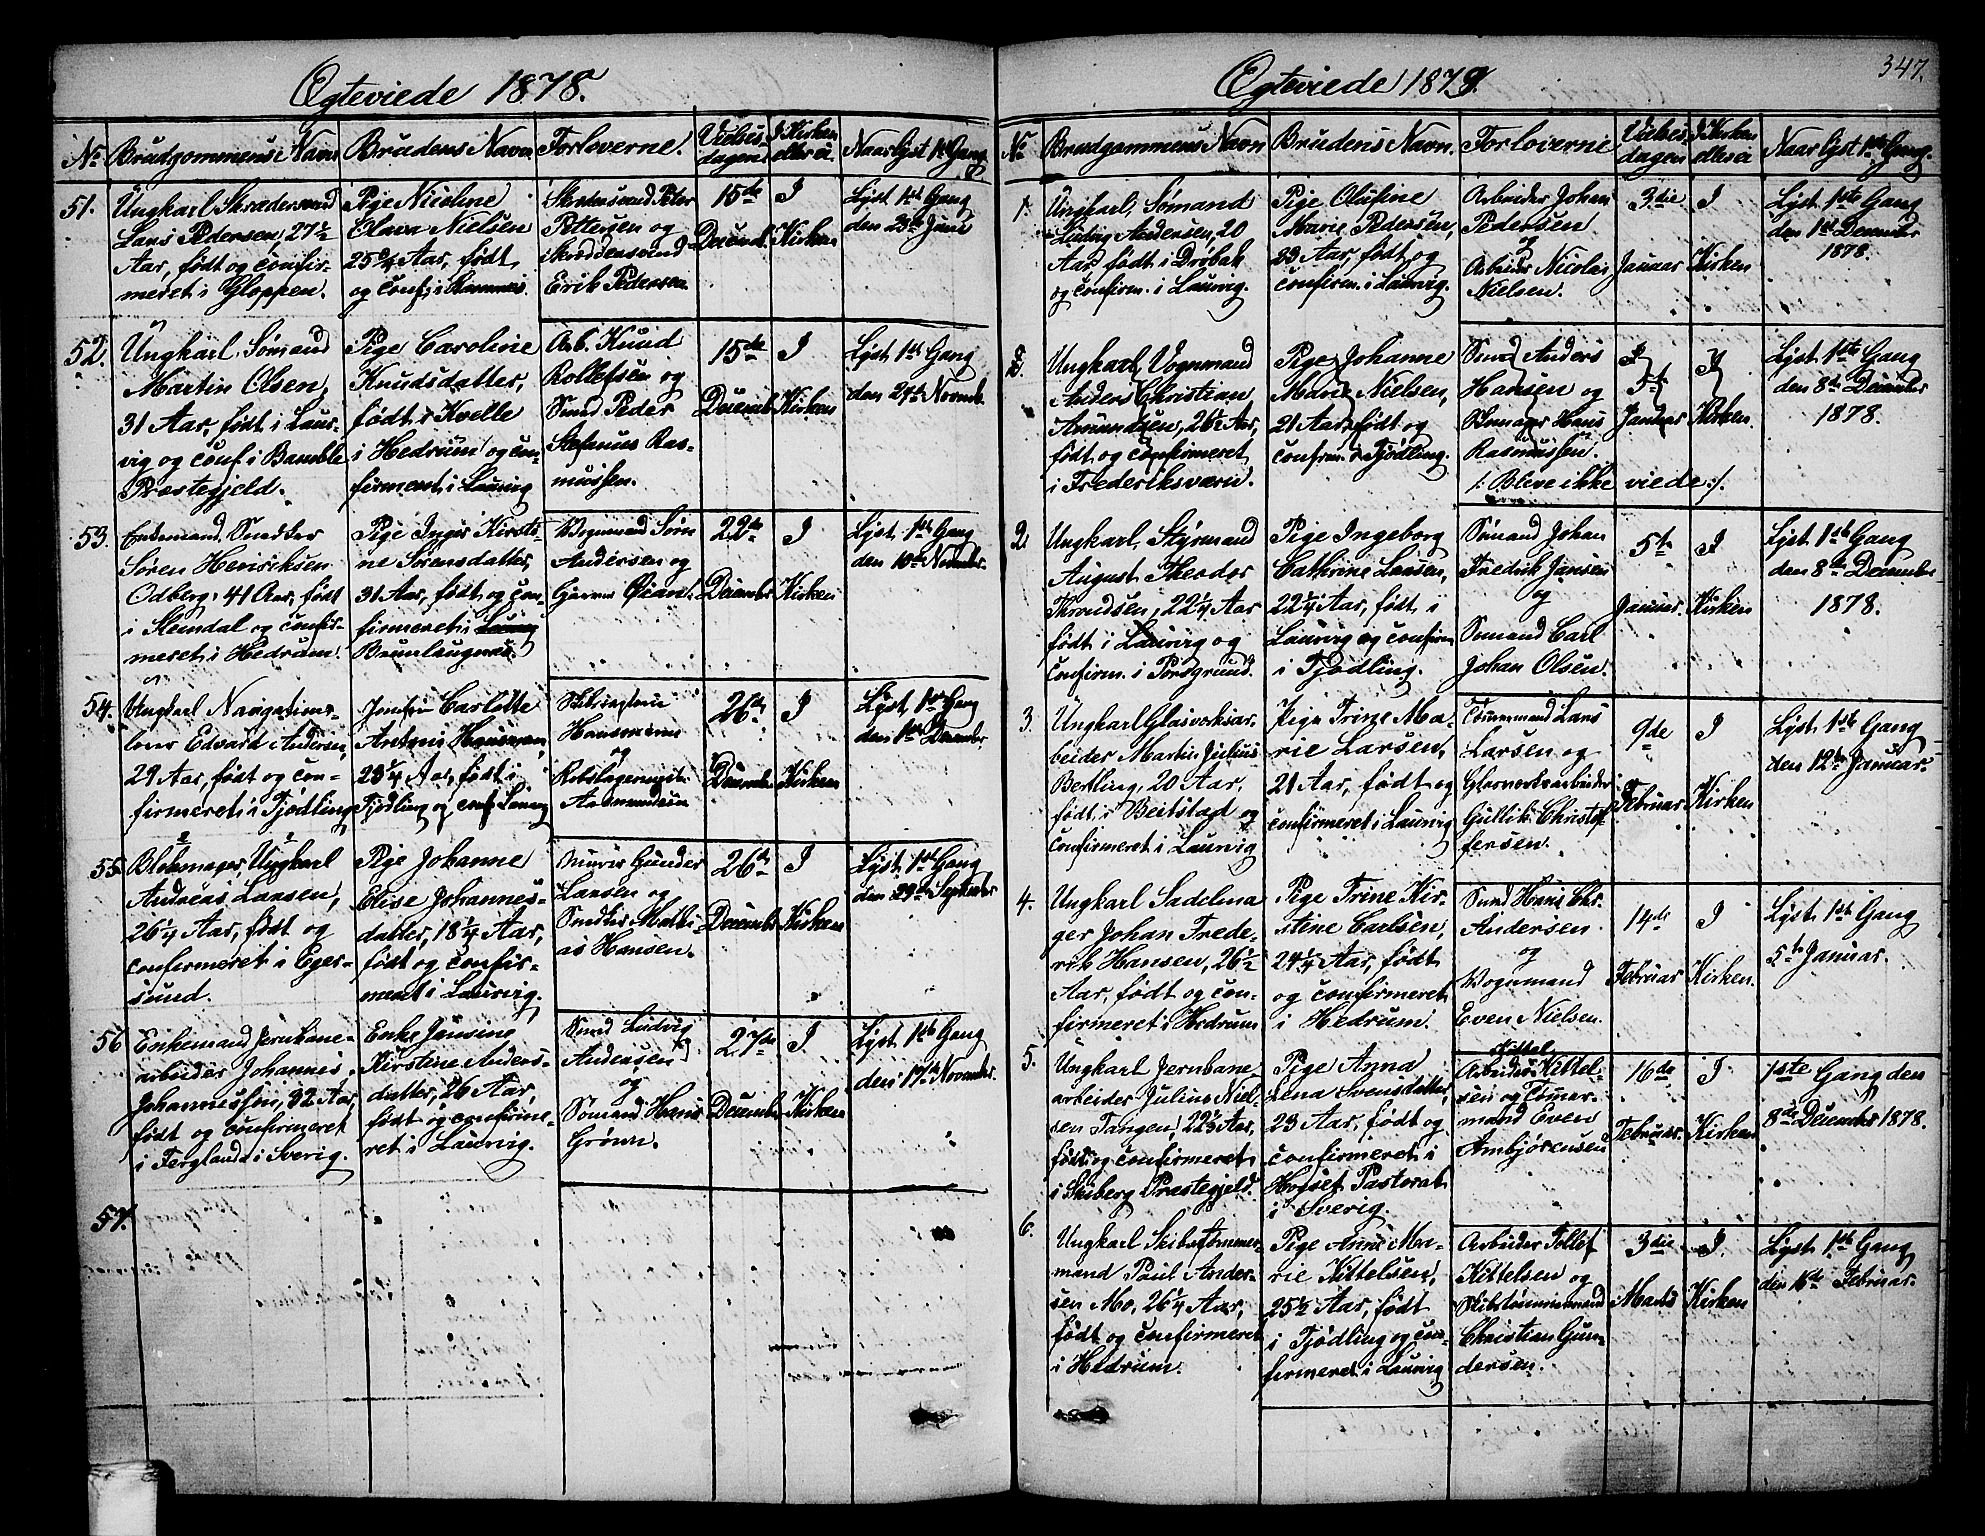 Egteviede 1878.
No. Brudgommens Navn Brudens Navn Forloverne. Vielses-dagen I Kirken eller ei Naar lyst 1ste Gang
51.
Ungkarl Skrædersvend
Lars Pedersen, 27½
Aar, født og confir-
meret i Gloppen.
Pige Nicoline
Olava Nielsen
25¾ Aar, født
og conf. i
Skrædersvend Peter
Pettersen og
Skræddersvend
Erik Pedersen
15de
Decemb.
I
Kirken
Lyst 1ste Gang
den 23de Juni
52.
Ungkarl, Sømand
Martin Olsen,
31 Aar, født i Laur-
vig og conf. i Bamble
Præstegjeld.
Pige Caroline
Knudsdatter,
født i Kvelle
i Hedrum og con-
firmeret i Laurvig
Arb. Knud
Rollefsen og
Smd Peder
Stefanus Ras-
mussen.
15de
Decemb.
I
Kirken
Lyst 1ste Gang
den 24de Novemb.
53.
Enkemand, Smed
Søren Henriksen
Odberg, 41 Aar, født
i Slemdal og confir-
meret i Hedrum.
Pige Inger Kirsti-
ne Sørensdatter,
31 Aar, født og con-
firmeret i Laurvig
Brunlaugnæs.
Vognmand Søren
Andersen og
22de
Decembr.
I
Kirken
Lyst 1ste Gang
den 10de November
54.
Ungkarl Navigations-
lærer Edvard Andersen,
29 Aar, født og con-
firmeret i Tjødling
Jomfru Carlotte
Antonie Hansman,
28¼ Aar, født i
Tjødling og conf. Laurvig
Hansmann
og
Rebslagermester
Aamundsen
26de
Decembr.
I
Kirken
Lyst 1ste Gang
den 1ste December
55.
Blokmager, Ungkarl
Andreas Larsen,
26¼ Aar, født og
confirmeret i Eger-
sund.
Pige Johanne
Elise Johannes-
datter, 18¼ Aar,
født og confir-
meret i Laurvig.
Murer Gunder
Larsen og
Matthi-
as Hansen.
26de
Decembr.
I
Kirken
Lyst 1ste Gang
den 29de September
56
Enkemand Jernbane-
arbeider Johannes
Johannessøn, 32 Aar,
født og confirmeret
i Ferglanda i Sverig.
Enke Jansine
Kirstine Anders-
datter, 26 Aar,
født og confirme-
ret i Laurvig.
Smed Ludvig
Andersen
og
Sømand Hans
Grønn.
27de
Decembr.
I
Kirken
Lyst 1ste Gang
den 17de November.
57.
347.
Egteviede 1879.
No. Brudgommens Navn Brudens Navn. Forloverne Vielses-dagen I Kirken eller ei Naar lyst 1ste Gang.
1.
Ungkarl, Sømand
Ludvig Andersen, 20
Aar, født i Drøbak
og confirm. i Laurvig.
Pige Olufine
Marie Pedersen,
23 Aar, født og
confirm. i Laurvig.
Arbeider Johan
Pedersen
og
Arbeider Nicolai
Nielsen.
3die
Januar
I
Kirken
Lyst 1ste Gang
den 1ste December
1878.
2.
Ungkarl, Vognmand
Anders Christian
Amundsen, 26½ Aar,
født og confirmeret
i Frederiksværn.
Pige Johanne
Marie Nielsen,
21 Aar, født og
confirm. i Tjødling.
Smed Anders
Hansen og
Hans
Rasmussen.
/: Bleve ikke viede :/.
Januar
I
Kirken.
Lyst 1ste Gang
den 8de December
1878.
2
Ungkarl, Styrmand
August Theodor
Knudsen, 22¼ Aar
født i Laurvig og
confirm. i Porsgrund.
Pige Ingeborg
Cathrine Larsen,
22¼ Aar, født i
Laurvig og confirm
i Tjødling.
Sømand Johan
Fredrik Jansen
og
Sømand Carl
Johan Olsen.
5te
Januar.
I
Kirken
Lyst 1ste Gang
den 8de December
1878.
3.
Ungkarl Glasværksar-
beider Martin Julius
Bertling, 20 Aar,
født i Beitstad og
confirmeret i Laurvig
Pige Trine Ma-
rie Larsen,
21 Aar, født og
confirmeret i Laurvig
Tømmermand Lars
Larsen og
Glasværksarbeider
Gullik Christof-
fersen.
9de
Februar
I
Kirken
Lyst 1ste Gang
den 12te Januar.
4.
Ungkarl Sadelma
ger Johan Frede-
rik Hansen, 26½
Aar, født og con-
firmeret i Hedrum
Pige Trine Kir-
stine Carlsen,
24¼ Aar, født
og confirmeret
i Hedrum.
Smed Hans Chr.
Andersen
og
Vognmand
Even Nielsen.
14de
Februar
I
Kirken.
Lyst 1ste Gang
5te Januar.
5.
Ungkarl Jernbane
arbeider Julius Niel-
sen Tangen, 22½ Aar,
født og confirmeret
i Skiberg Præstegjeld.
Pige Anna
Lena Svensdatter,
23 Aar, født og
confirmeret i
Hogset Pastorat
i Sverig.
Kittel
Arbeider Kittel-
sen og Tømer-
mand Even
Ambjørensen
16de
Februar.
I
Kirken
1ste Gang den
8de December 1878.
6.
Ungkarl Skibstømmer-
mand Paul Ander-
sen Mo, 26¼ Aar,
født og confirmeret
i Hedrum.
Pige Anne Ma-
rie Kittelsen,
25½ Aar, født
i Tjødling og con-
firmeret i Laurvig
Arbeider Tollef
Kittelsen og
Skibstømmermand
Christian Gun-
dersen.
3die
Marts
I
Kirken
Lyst 1ste Gang
den 16de Februar.